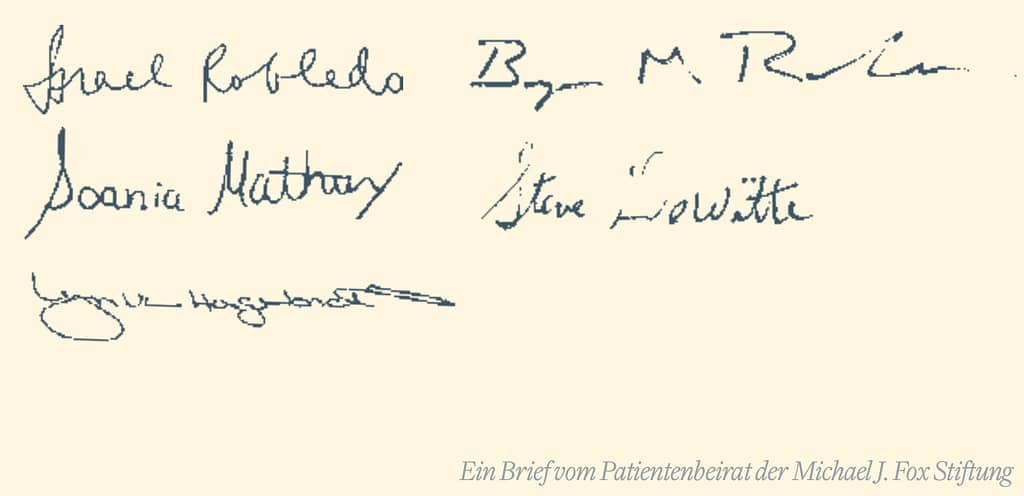 Israel Robledo
Bryan M. R
Soania Mathur
Steve DeWitte
Lynn Hagerbrant
Ein Brief vom Patientenbeirat der Michael J. Fox Stiftung